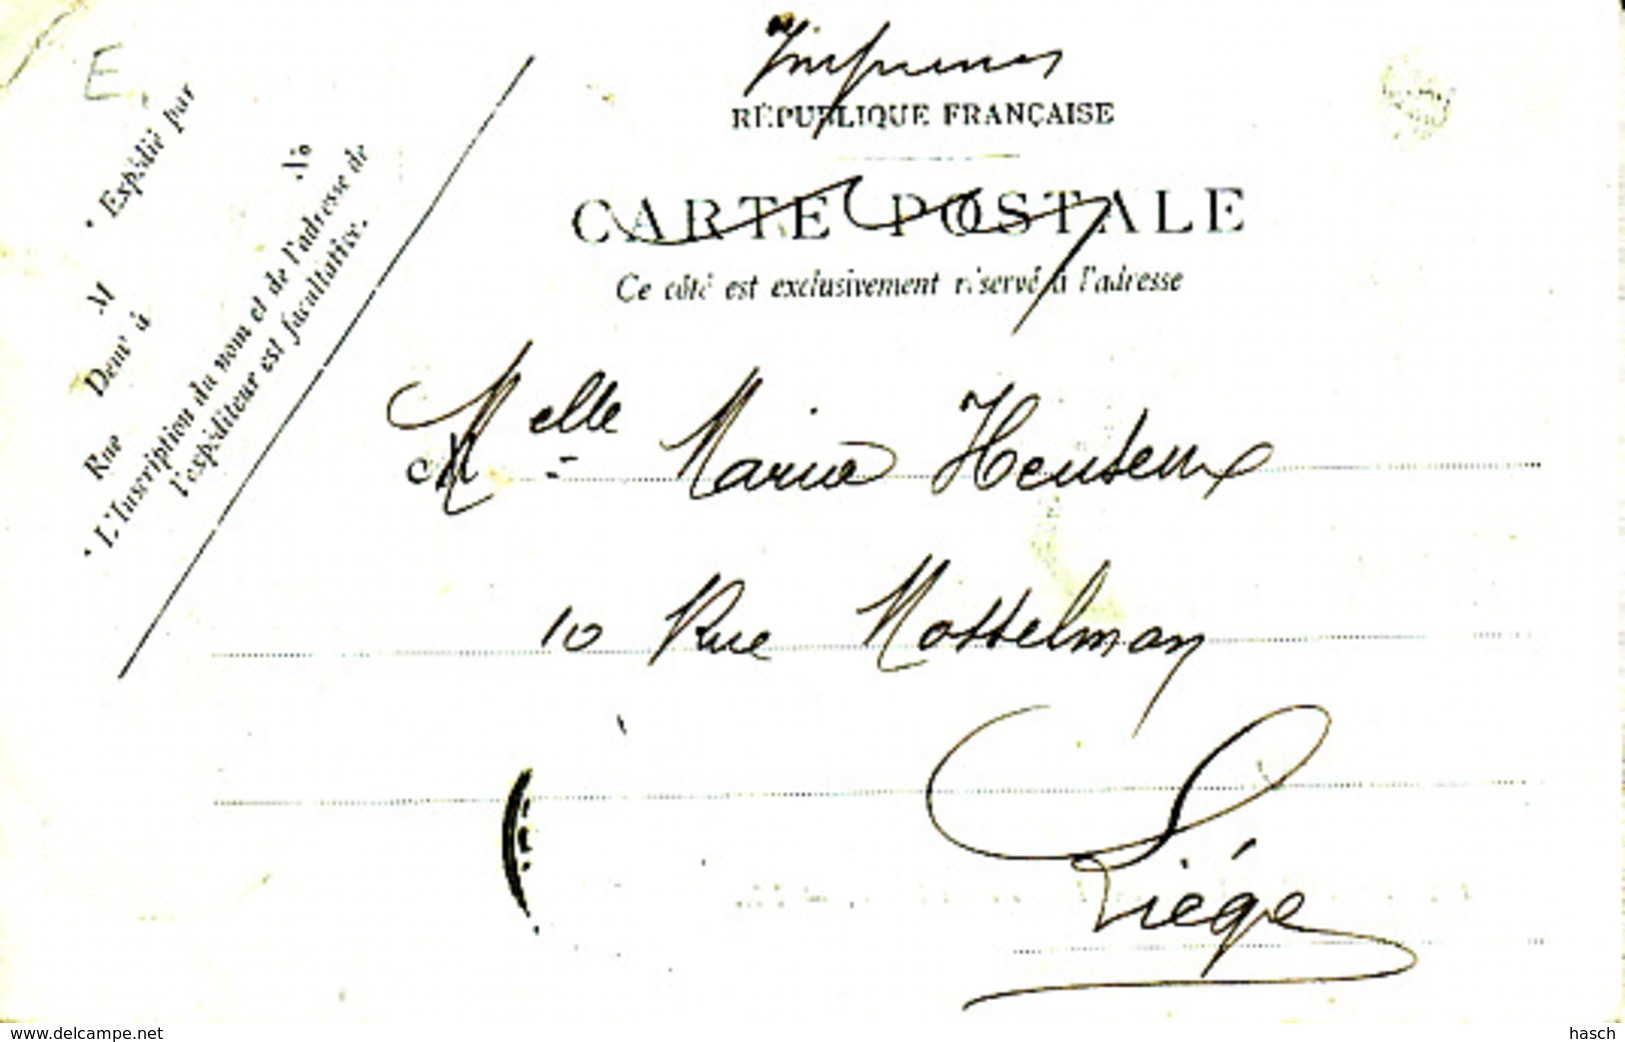 E
Imprimés
RÉPUBLIQUE FRANÇAISE
CARTE POSTALE
Ce côté est exclusivement réservé à l'adresse
• Expédié par
M
Demt à
Rue
No
• L'Inscription du nom et de l'adresse de
l'expéditeur est facultative.
M
Melle Marie
10 Rue Mottelman
Liége
www.delcampe.net
hasch